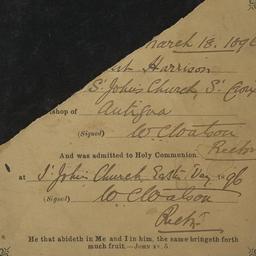 March 18. 1896
Harrison
St Johns Church, St Croix
shop of Antigua
(Signed) W C Watson
Rector
And was admitted to Holy Communion.
at St Johns Church Easter Day 1896
(Signed) W C Watson
Rector
He that abideth in Me and I in him, the same bringeth forth
much fruit.—JOHN xv. 5